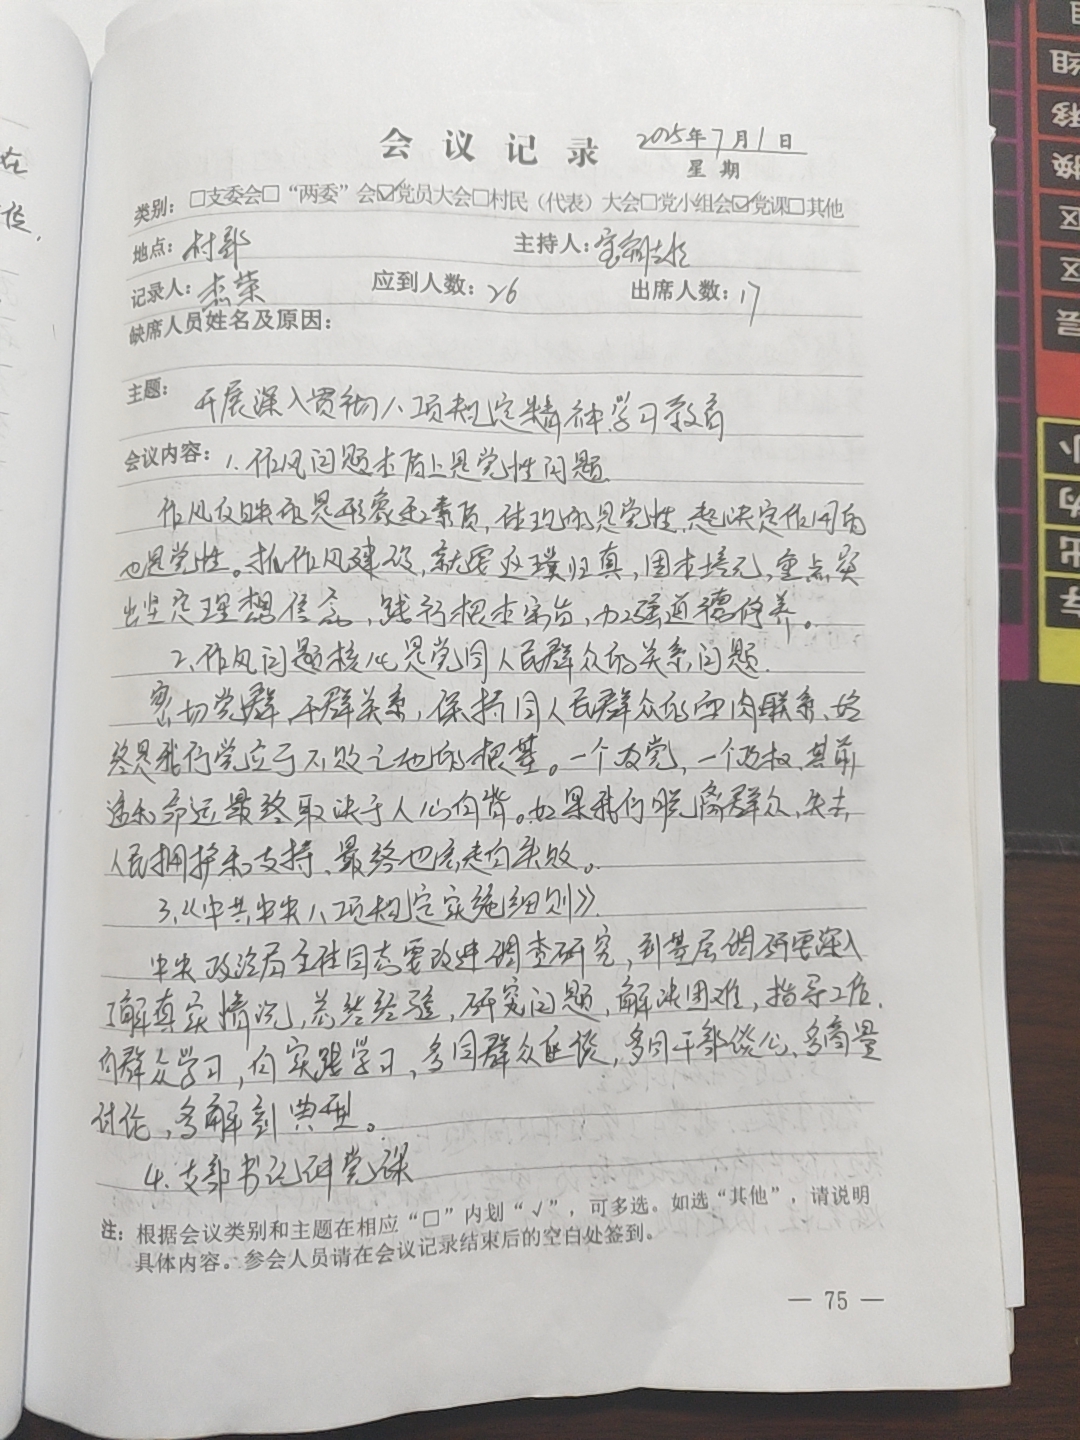 会议记录 2025年7月1日
星期
类别：□支委会□“两委”会☑党员大会□村民（代表）大会□党小组会☑党课□其他
地点：村部 主持人：
记录人：杰荣 应到人数：26 出席人数：17
缺席人员姓名及原因：
主题：开展深入贯彻八项规定精神学习教育
会议内容：1.作风问题本质上是党性问题.
作风反映的是形象和素质，体现的是党性，起决定作用的
也是党性。抓作风建设，就要返璞归真，固本培元，重点突
出坚定理想信念，践行根本宗旨，加强道德修养。
2、作风问题核心是党同人民群众的关系问题.
密切党群、干群关系，保持同人民群众的血肉联系，始
终是我们党立于不败之地的根基。一个政党，一个政权，其前
途和命运最终取决于人心向背。如果我们脱离群众、失去
人民拥护和支持、最终也会走向失败。
3、《中共中央八项规定实施细则》.
中央政治局全体同志要改进调查研究，到基层调研要深入
了解真实情况，总结经验，研究问题，解决困难，指导工作.
向群众学习，向实践学习，多同群众座谈，多同干部谈心，多商量
讨论，多解剖典型。
4.支部书记讲党课
注：根据会议类别和主题在相应“□”内划“√”，可多选。如选“其他”，请说明
具体内容。参会人员请在会议记录结束后的空白处签到。
— 75 —